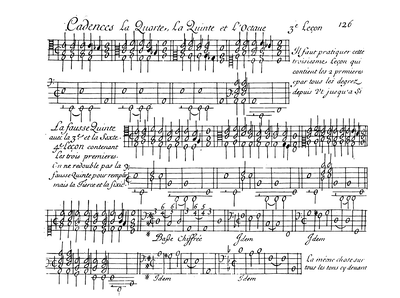 Cadences la Quarte, la Quinte et l'Octave 3e Leçon 126
Il faut pratiquer cette
troisieme Leçon qui
contient les 2 premieres
par tous les degrez
depuis Ut jusqu'a Si
La fausse Quinte
avec la 3ce et la Sexte
4e Leçon contenant
les trois premieres
On ne redouble pas la
fausse Quinte pour remplir
mais la Tierce et la Sixte
Basse Chiffrée Idem Idem
La même chose sur
tous les tons cy devant
Idem